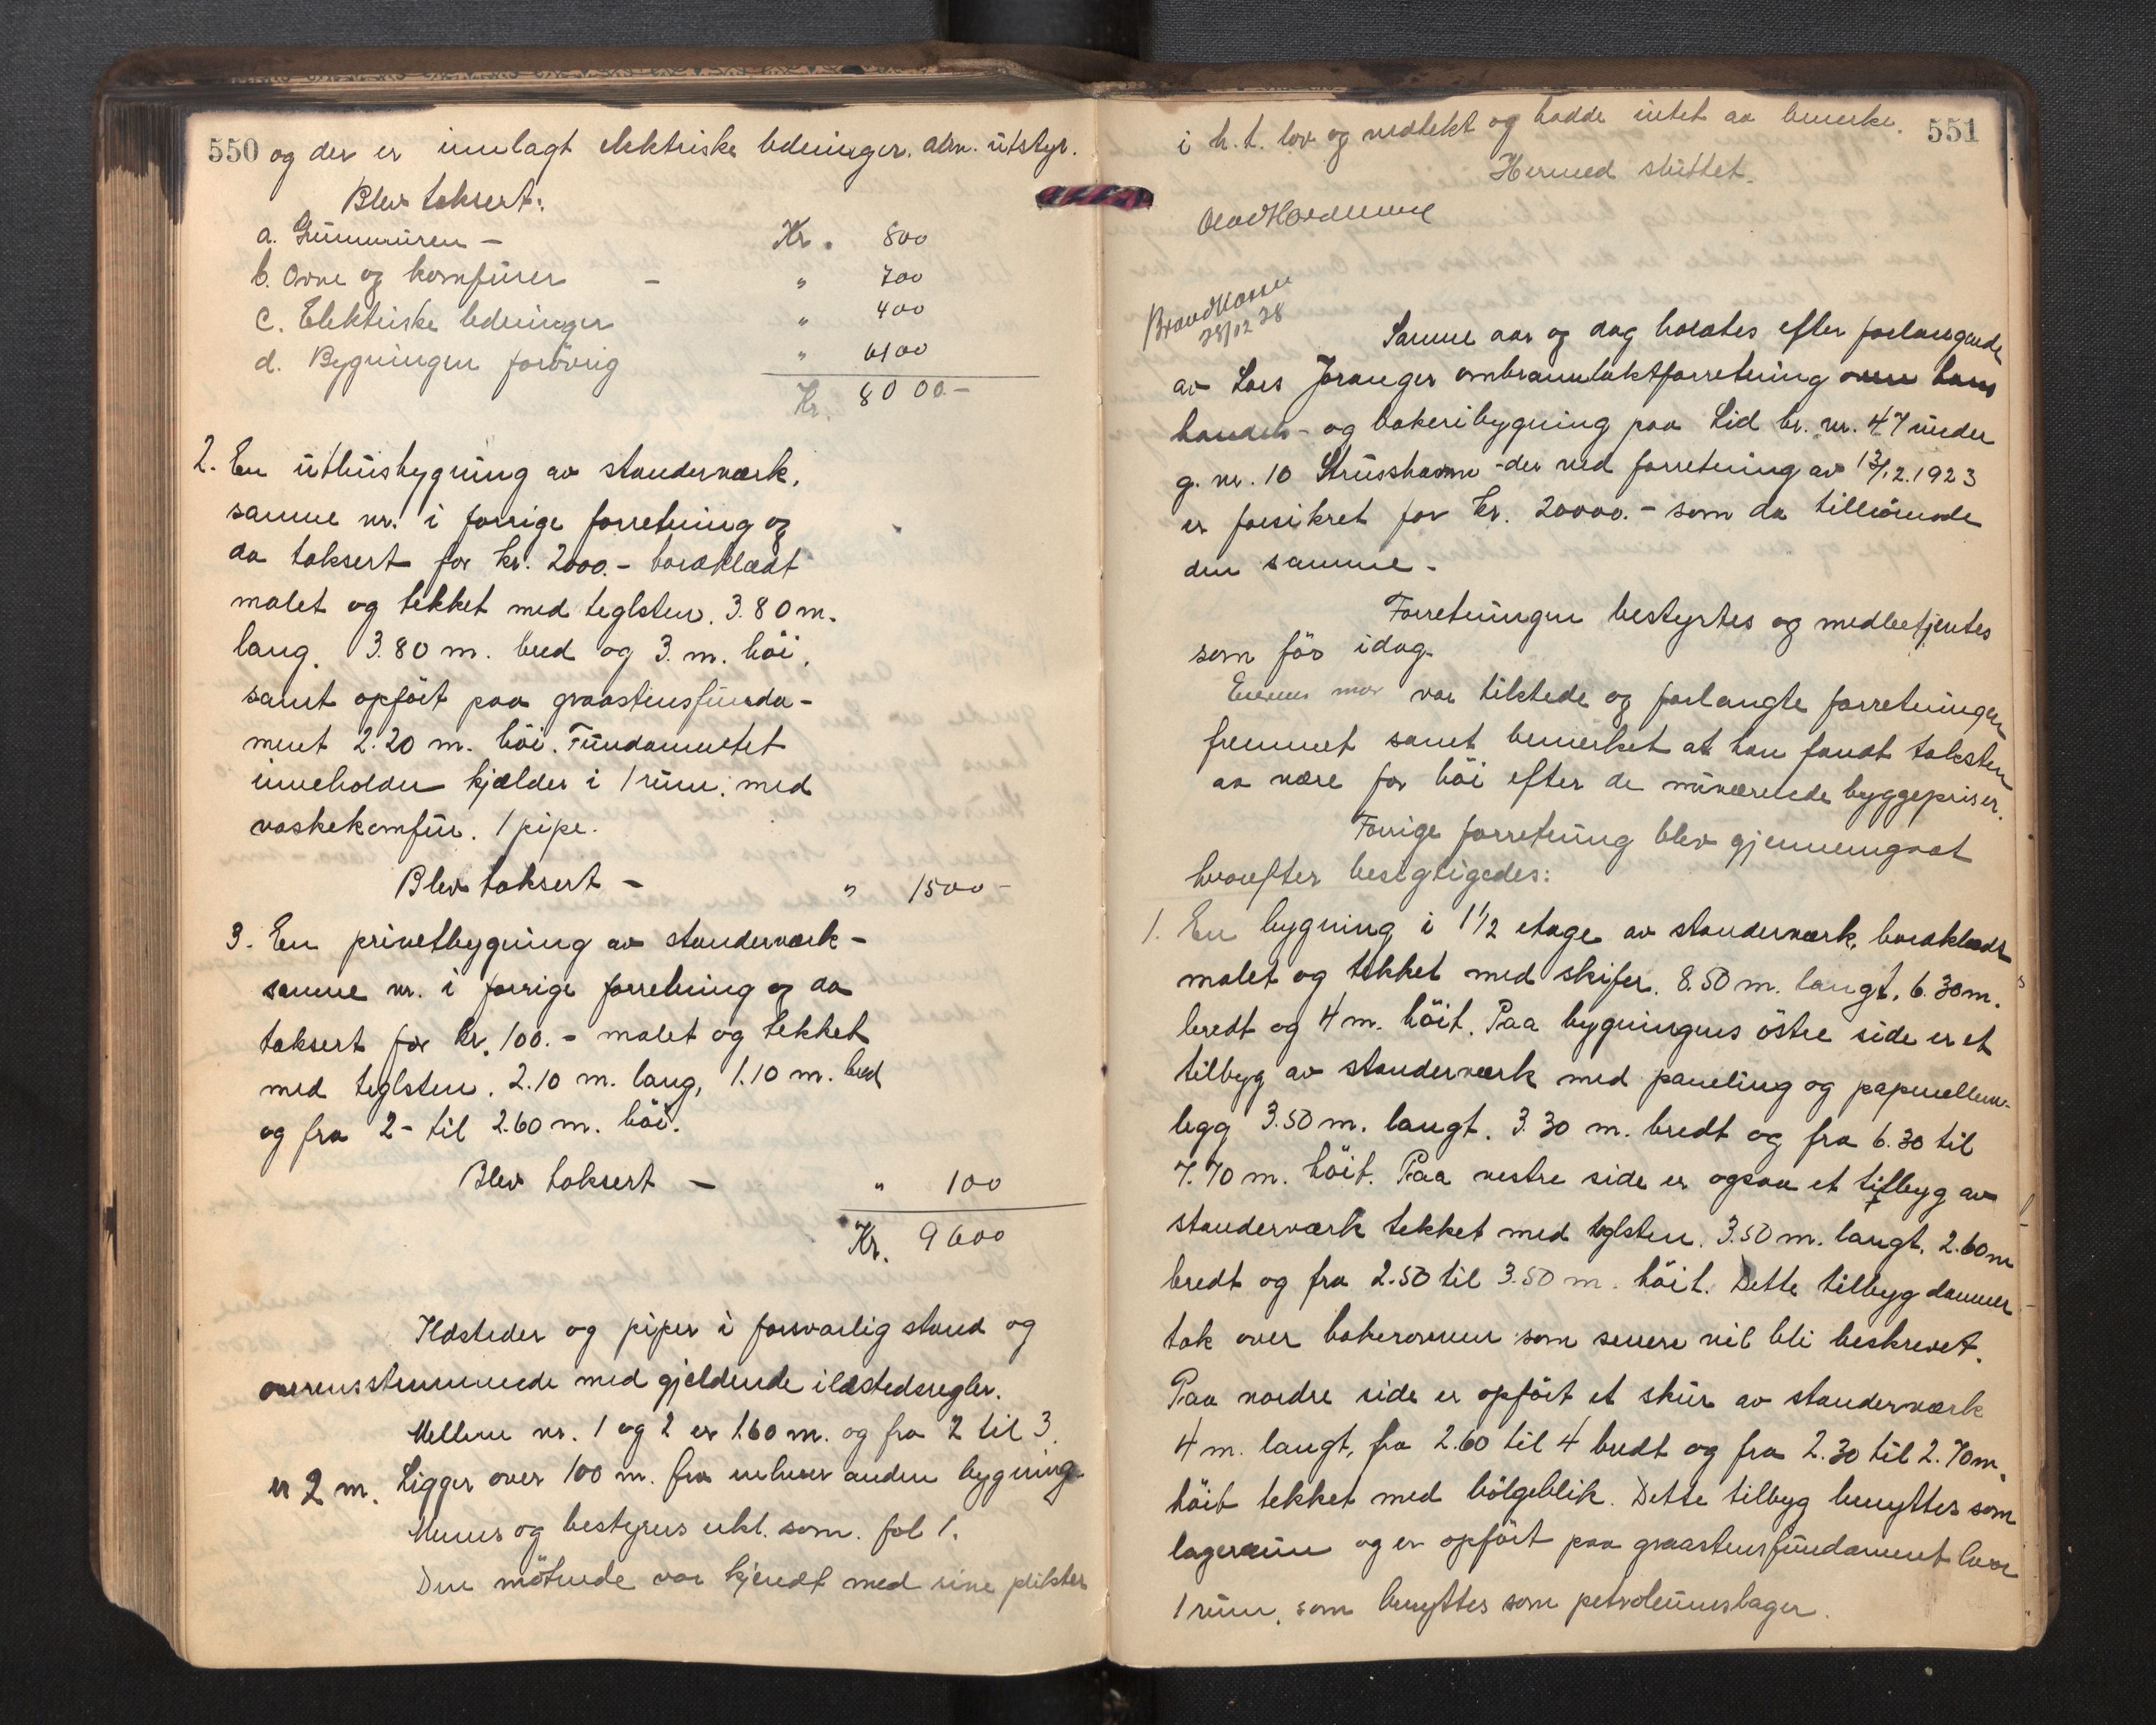 550 og der er innlagt elektriske ledninger. alm. utstyr.
Blev taksert:
a. Grunnmuren - Kr. 800
b. Ovne og komfürer - " 700
c. Elektriske ledninger " 400
d. Bygningen forövrig " 6100
Kr. 8000.-
2. En üthüsbygning av stenderværk,
samme nr. i forrige forretning og
da taksert for kr. 2000.- bordklædt
malet og tekket med teglsten. 3.80 m.
lang. 3.80 m. bred og 3. m. höi,
samt opfört paa graastensfunda-
ment 2.20 m. höi. Fündamentet
inneholder kjælder i 1 rüm. med
vaskekomfür. 1 pipe.
Blev taksert - " 1500 -
3. En privetbygning av stenderværk -
samme nr. i forrige forretning og da
taksert for kr. 100.- malet og tekket
med teglsten. 2.10 m. lang, 1.10 m. bred
og fra 2 - til 2.60 m. höi.
Blev taksert - " 100
Kr. 9600
Ildsteder og piper i forsvarlig stand og
overensstemmende med gjeldende ildstedsregler.
Mellem nr. 1 og 2 er 1.60 m. og fra 2 til 3.
er 2 m. Ligger over 100 m. fra enhver anden bygning.
Menns og bestyrers erkl. som. fol 1.
Den mötende var kjendt med sine plikter
551
i h. t. lov og vedtekt og hadde intet aa bemerke.
Hermed slüttet.
Brandkassen
28/12 28
Samme aar og dag holdtes efter forlangende
av Lars Joranger ombranntakstforretning over hans
handels- og bakeribygning paa Lid br. nr. 47 ünder
g. nr. 10 Strusshamn - der ved forretning av 13/12.1923
er forsikret for kr. 20000.- som da tilhörende
den samme -
Forretningen bestyrtes og medbetjentes
som för idag.
Eieren var tilstede og forlangte forretningen
fremmet samt bemerket at han fandt taksten
aa være for höi efter de nüværende byggepriser.
Forrige forretning blev gjennemgaat
hvorefter besigtigedes:
1. En bygning i 1 1/2 etage av stenderværk, bordklædt
malet og tekket med skifer. 8.50 m. langt, 6.30 m.
bredt og 4 m. höit. Paa bygningens östre side er et
tilbyg av stenderværk med paneling og papmellem-
legg 3.50 m. langt. 3.30 m. bredt og fra 6.30 til
7.70 m. höit. Paa vestre side er ogsaa et tilbyg av
stenderværk tekket med teglsten. 3.50 m. langt, 2.60 m
bredt og fra 2.50 til 3.50 m. höit. Dette tilbyg danner
tak over bakerovnen som senere vil bli beskrevet.
Paa nordre side er opfört et skür av stenderværk
4 m. langt, fra 2.60 til 4 bredt og fra 2.30 til 2.70 m.
höit tekket med bölgeblik. Dette tilbyg benyttes som
lagerrüm og er opfört paa graastensfündament hvor
1 rüm, som benyttes som petroleümslager.